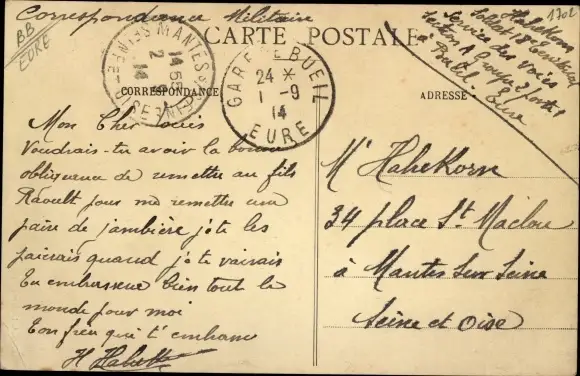 Correspondance Militaire
BB
EURE
1702
CARTE POSTALE
Hahekorn
Soldat
Service des Voies
Section A Groupe 2 poste 1
à Bueil Eure
MANTES-SUR-SEINE
14 55
2 -9
14
SEINE-ET-OISE
GARE DE BUEIL
24 *
1 -9
14
EURE
CORRESPONDANCE
ADRESSE
Mon Cher Louis
Voudrais-tu avoir la bonne
obligeance de remettre au fils
Raoult pour me remettre une
paire de jambière je te les
paierais quand je te vairais
Tu embrassera bien tout le
monde pour moi
Ton frère qui t'embrasse
H
Mr Hahekorn
34 place St Maclou
à Mantes sur Seine
Seine et Oise